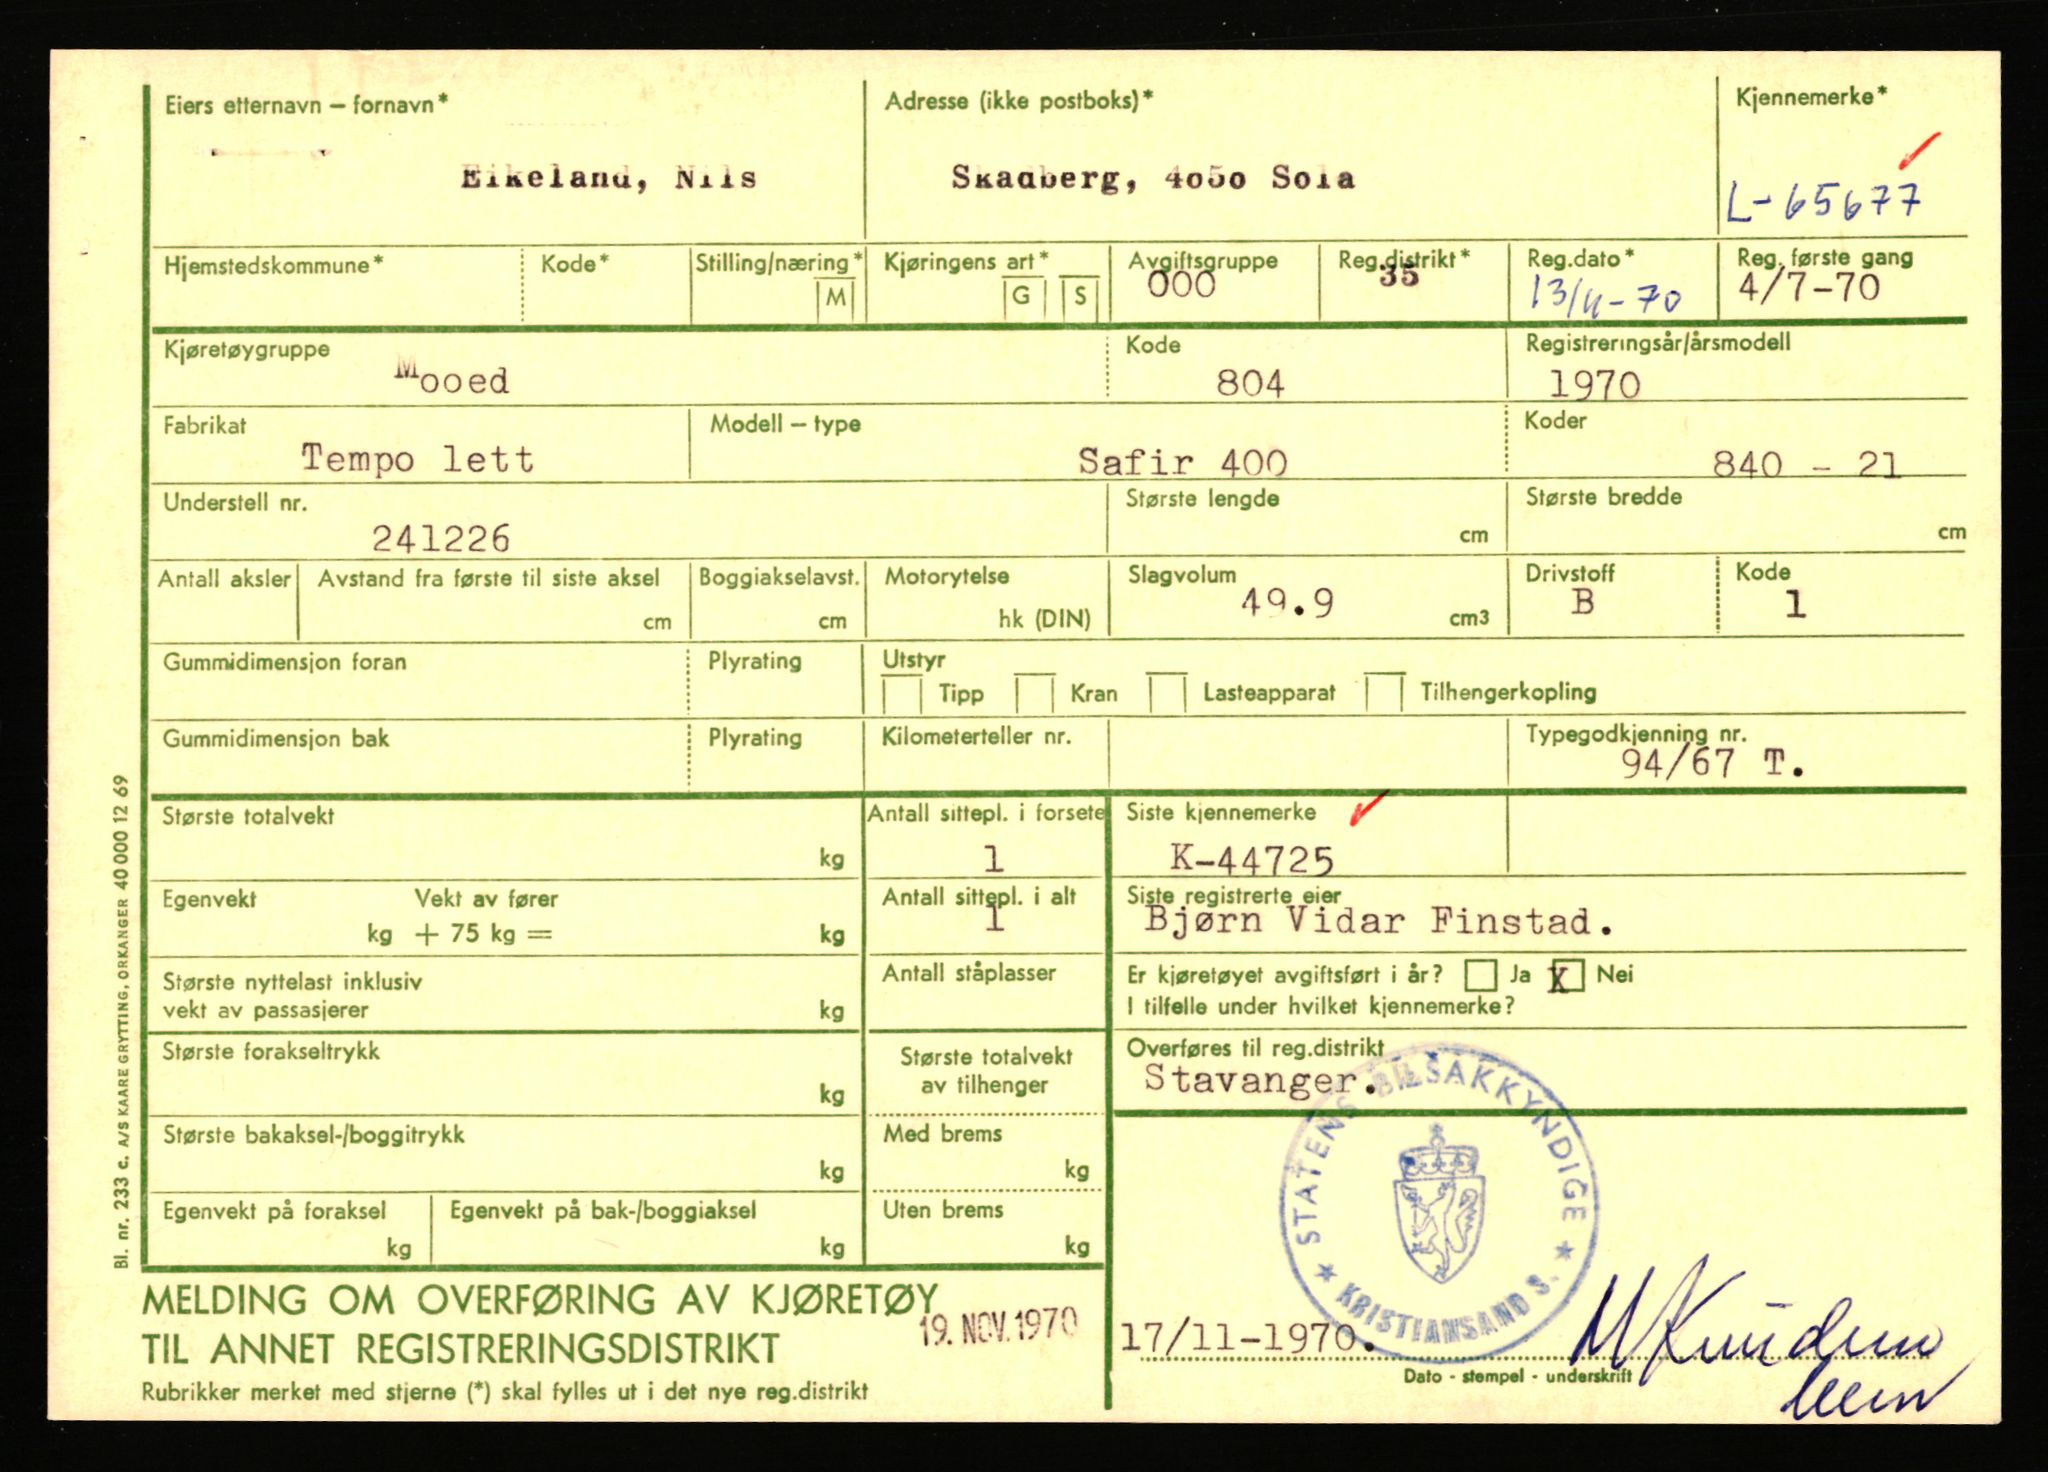 Eiers etternavn – fornavn* Adresse (ikke postboks)* Kjennemerke*
Eikeland, Nils Skadberg, 4050 Sola L-65677
Hjemstedskommune* Kode* Stilling/næring* M Kjøringens art* G S Avgiftsgruppe 000 Reg.distrikt* 35 Reg.dato* 13/11-70 Reg. første gang 4/7-70
Kjøretøygruppe Kode Registreringsår/årsmodell
Mooed 804 1970
Fabrikat Modell – type Koder
Tempo lett Safir 400 840 - 21
Understell nr. Største lengde Største bredde
241226 cm cm
Antall aksler Avstand fra første til siste aksel Boggiakselavst. Motorytelse Slagvolum Drivstoff Kode
cm cm hk (DIN) 49.9 cm3 B 1
Gummidimensjon foran Plyrating Utstyr
Tipp Kran Lasteapparat Tilhengerkopling
Gummidimensjon bak Plyrating Kilometerteller nr. Typegodkjenning nr.
94/67 T.
Største totalvekt Antall sittepl. i forsete Siste kjennemerke
kg 1 K-44725
Egenvekt Vekt av fører Antall sittepl. i alt Siste registrerte eier
kg + 75 kg = kg 1 Bjørn Vidar Finstad.
Største nyttelast inklusiv Antall ståplasser Er kjøretøyet avgiftsført i år? Ja X Nei
vekt av passasjerer kg I tilfelle under hvilket kjennemerke?
Største forakseltrykk Største totalvekt Overføres til reg.distrikt
kg av tilhenger Stavanger.
Største bakaksel-/boggitrykk Med brems
kg kg
Egenvekt på foraksel Egenvekt på bak-/boggiaksel Uten brems
kg kg kg
STATENS BILSAKKYNDIGE
★ KRISTIANSAND S. ★
MELDING OM OVERFØRING AV KJØRETØY
TIL ANNET REGISTRERINGSDISTRIKT
19. NOV. 1970
17/11-1970. M Knudsen
Dato - stempel - underskrift
Rubrikker merket med stjerne (*) skal fylles ut i det nye reg.distrikt
Bl. nr. 233 c. A/S KAARE GRYTTING, ORKANGER 40 000 12 69